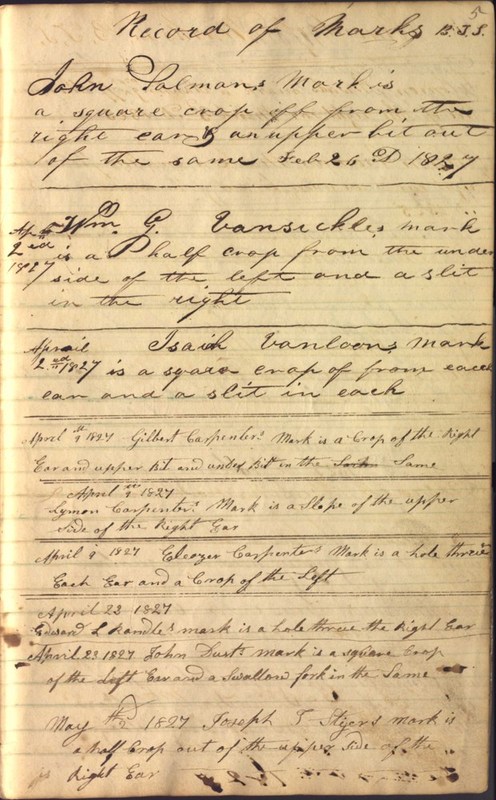 5
Record of Marks B.J.S.
John Salmans Mark is
a square crop off from the
right ear & an upper bit out
of the same Feb 26 D 1827
Wm. G. Vansickles mark
April
2 ed
1827
is a half crop from the under
side of the left and a slit
in the right
Aprail Isaih Vanloons mark
2 ed 1827 is a sqare crop of from each
ear and a slit in each
April 9th 1827 Gilbert Carpenters Mark is a Crop of the Right
Ear and upper bit and under bit in the Same
April 9th 1827
Lymon Carpenters Mark is a Slope of the upper
Side of the Right Ear
April 9 1827 Eleazer Carpenters Mark is a hole threw
Each Ear and a Crop of the Left
April 23 1827
Edward L Randles mark is a hole threw the Right Ear
April 23 1827 John Dusts mark is a square Crop
of the Left Ear and a Swallow fork in the Same
May 1827 Joseph T Stijers mark is
a half Crop out of the upper Side of the
Right Ear